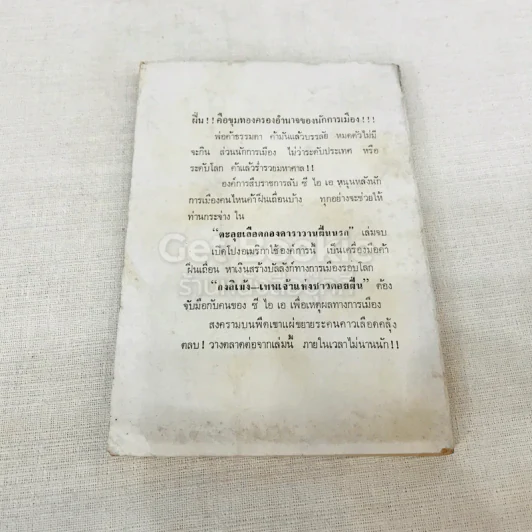 ฝิ่น!! คือขุมทองครองอำนาจของนักการเมือง!!!
พ่อค้าธรรมดา ค้ามันแล้วบรรลัย หมดตัวไม่มี
จะกิน ส่วนนักการเมือง ไม่ว่าระดับประเทศ หรือ
ระดับโลก ค้าแล้วร่ำรวยมหาศาล!!
องค์การสืบราชการลับ ซี ไอ เอ หนุนหลังนัก
การเมืองคนไหนค้าฝิ่นเถื่อนบ้าง ทุกอย่างจะช่วยให้
ท่านกระจ่าง ใน
"ตะลุยเลือดกองคาราวานฝิ่นนรก" เล่มจบ
เบิดโปงอเมริกาใช้องค์การนี้ เป็นเครื่องมือค้า
ฝิ่นเถื่อน หาเงินสร้างบัลลังก์ทางการเมืองรอบโลก
เทพเจ้าแห่งชาวดอยฝิ่น" ต้อง
จับมือกับคนของ ซี ไอ เอ เพื่อเหตุผลทางการเมือง
สงครามบนพืดเขาแผ่ขยายระคนคาวเลือดคลุ้ง
ตลบ! วางตลาดต่อจากเล่มนี้ ภายในเวลาไม่นานนัก!!